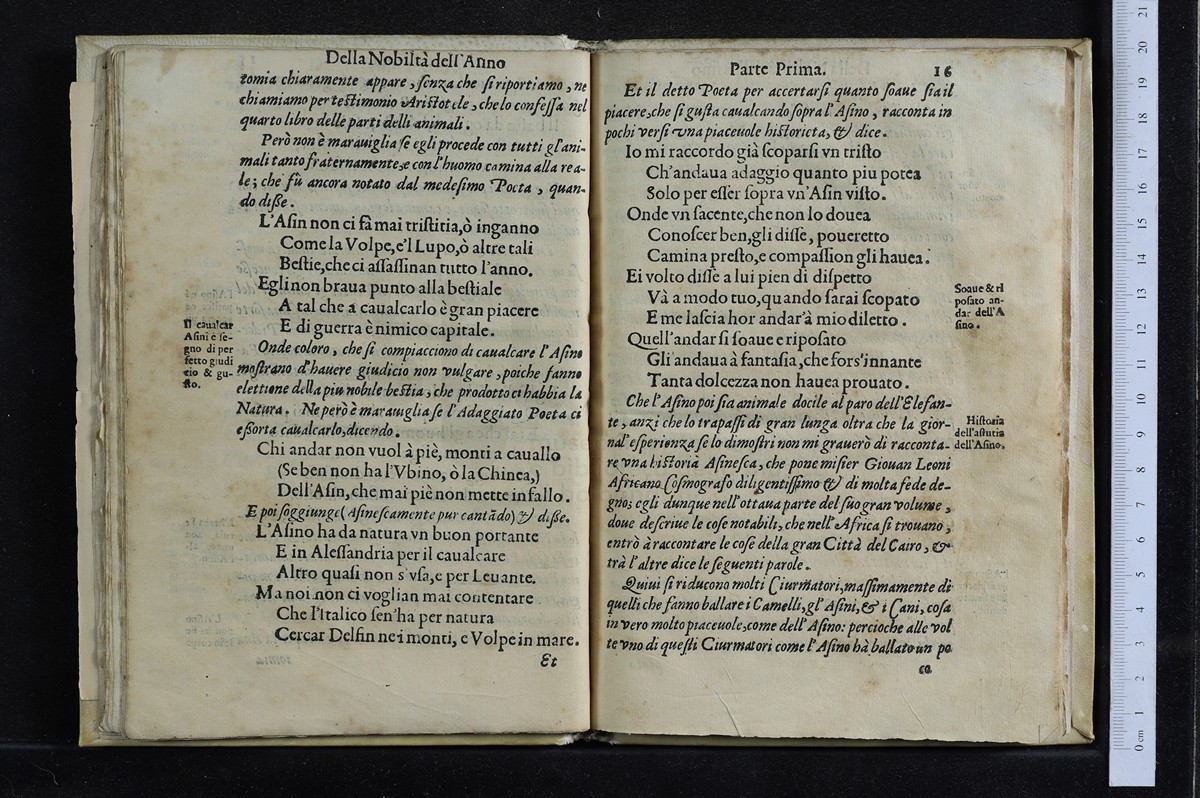 Della Nobiltà dell'Anno
tomia chiaramente appare, senza che si riportiamo, ne
chiamiamo per testimonio Aristotele, che lo confessa nel
quarto libro delle parti delli animali.
Però non è marauiglia se egli procede con tutti gl'ani-
mali tanto fraternamente, e con l'huomo camina alla rea-
le; che fù ancora notato dal medesimo Poeta, quan-
do disse.
L'Asin non ci fà mai tristitia, ò inganno
Come la Volpe, e'l Lupo, ò altre tali
Bestie, che ci assassinan tutto l'anno.
Egli non braua punto alla bestiale
A tal che a caualcarlo è gran piacere
E di guerra è nimico capitale.
Il caualcar
Asini e se-
gno di per
fetto giudi
tio & gu-
sto.
Onde coloro, che si compiacciono di caualcare l'Asino
mostrano d'hauere giudicio non vulgare, poiche fanno
elettione della piu nobile bestia, che prodotto ci habbia la
Natura. Ne però è marauiglia se l'Adaggiato Poeta ci
essorta caualcarlo, dicendo.
Chi andar non vuol à piè, monti a cauallo
(Se ben non ha l'Vbino, ò la Chinea,)
Dell'Asin, che mai piè non mette in fallo.
E poi soggiunge (Asinescamente pur cantādo) & disse.
L'Asino ha da natura vn buon portante
E in Alessandria per il caualcare
Altro quasi non s'vsa, e per Leuante.
Ma noi non ci voglian mai contentare
Che l'Italico sen'ha per natura
Cercar Delfin ne i monti, e Volpe in mare.
Et
Parte Prima. 16
Et il detto Poeta per accertarsi quanto soaue sia il
piacere, che si gusta caualcando sopra l'Asino, racconta in
pochi versi vna piaceuole historieta, & dice.
Io mi raccordo già scoparsi vn tristo
Ch'andaua adaggio quanto piu potea
Solo per esser sopra vn'Asin visto.
Onde vn facente, che non lo douea
Conoscer ben, gli disse, poueretto
Camina presto, e compassion gli hauea.
Ei volto disse a lui pien di dispetto
Và a modo tuo, quando sarai scopato
E me lascia hor andar'à mio diletto.
Quell'andar si soaue e riposato
Gli andaua à fantasia, che fors'innante
Tanta dolcezza non hauea prouato.
Soaue & ri
posato an-
dar dell'A
sino.
Che l'Asino poi sia animale docile al paro dell'Elefan-
te, anzi che lo trapassi di gran lunga oltra che la gior-
nal'esperienza se lo dimostri non mi grauerò di racconta-
re vna historia Asinesca, che pone misier Giouan Leoni
Africano Cosmografo diligentissimo & di molta fede de-
gno; egli dunque nell'ottaua parte del suo gran volume,
doue descriue le cose notabili, che nell'Africa si trouano,
entrò à raccontare le cose della gran Città del Cairo, &
trà l'altre dice le seguenti parole.
Historia
dell'astutia
dell'Asino.
Quiui si riducono molti Ciurmatori, massimamente di
quelli che fanno ballare i Camelli, gl'Asini, & i Cani, cosa
in vero molto piaceuole, come dell'Asino: percioche alle vol
te vno di questi Ciurmatori come l'Asino hà ballato un po
co